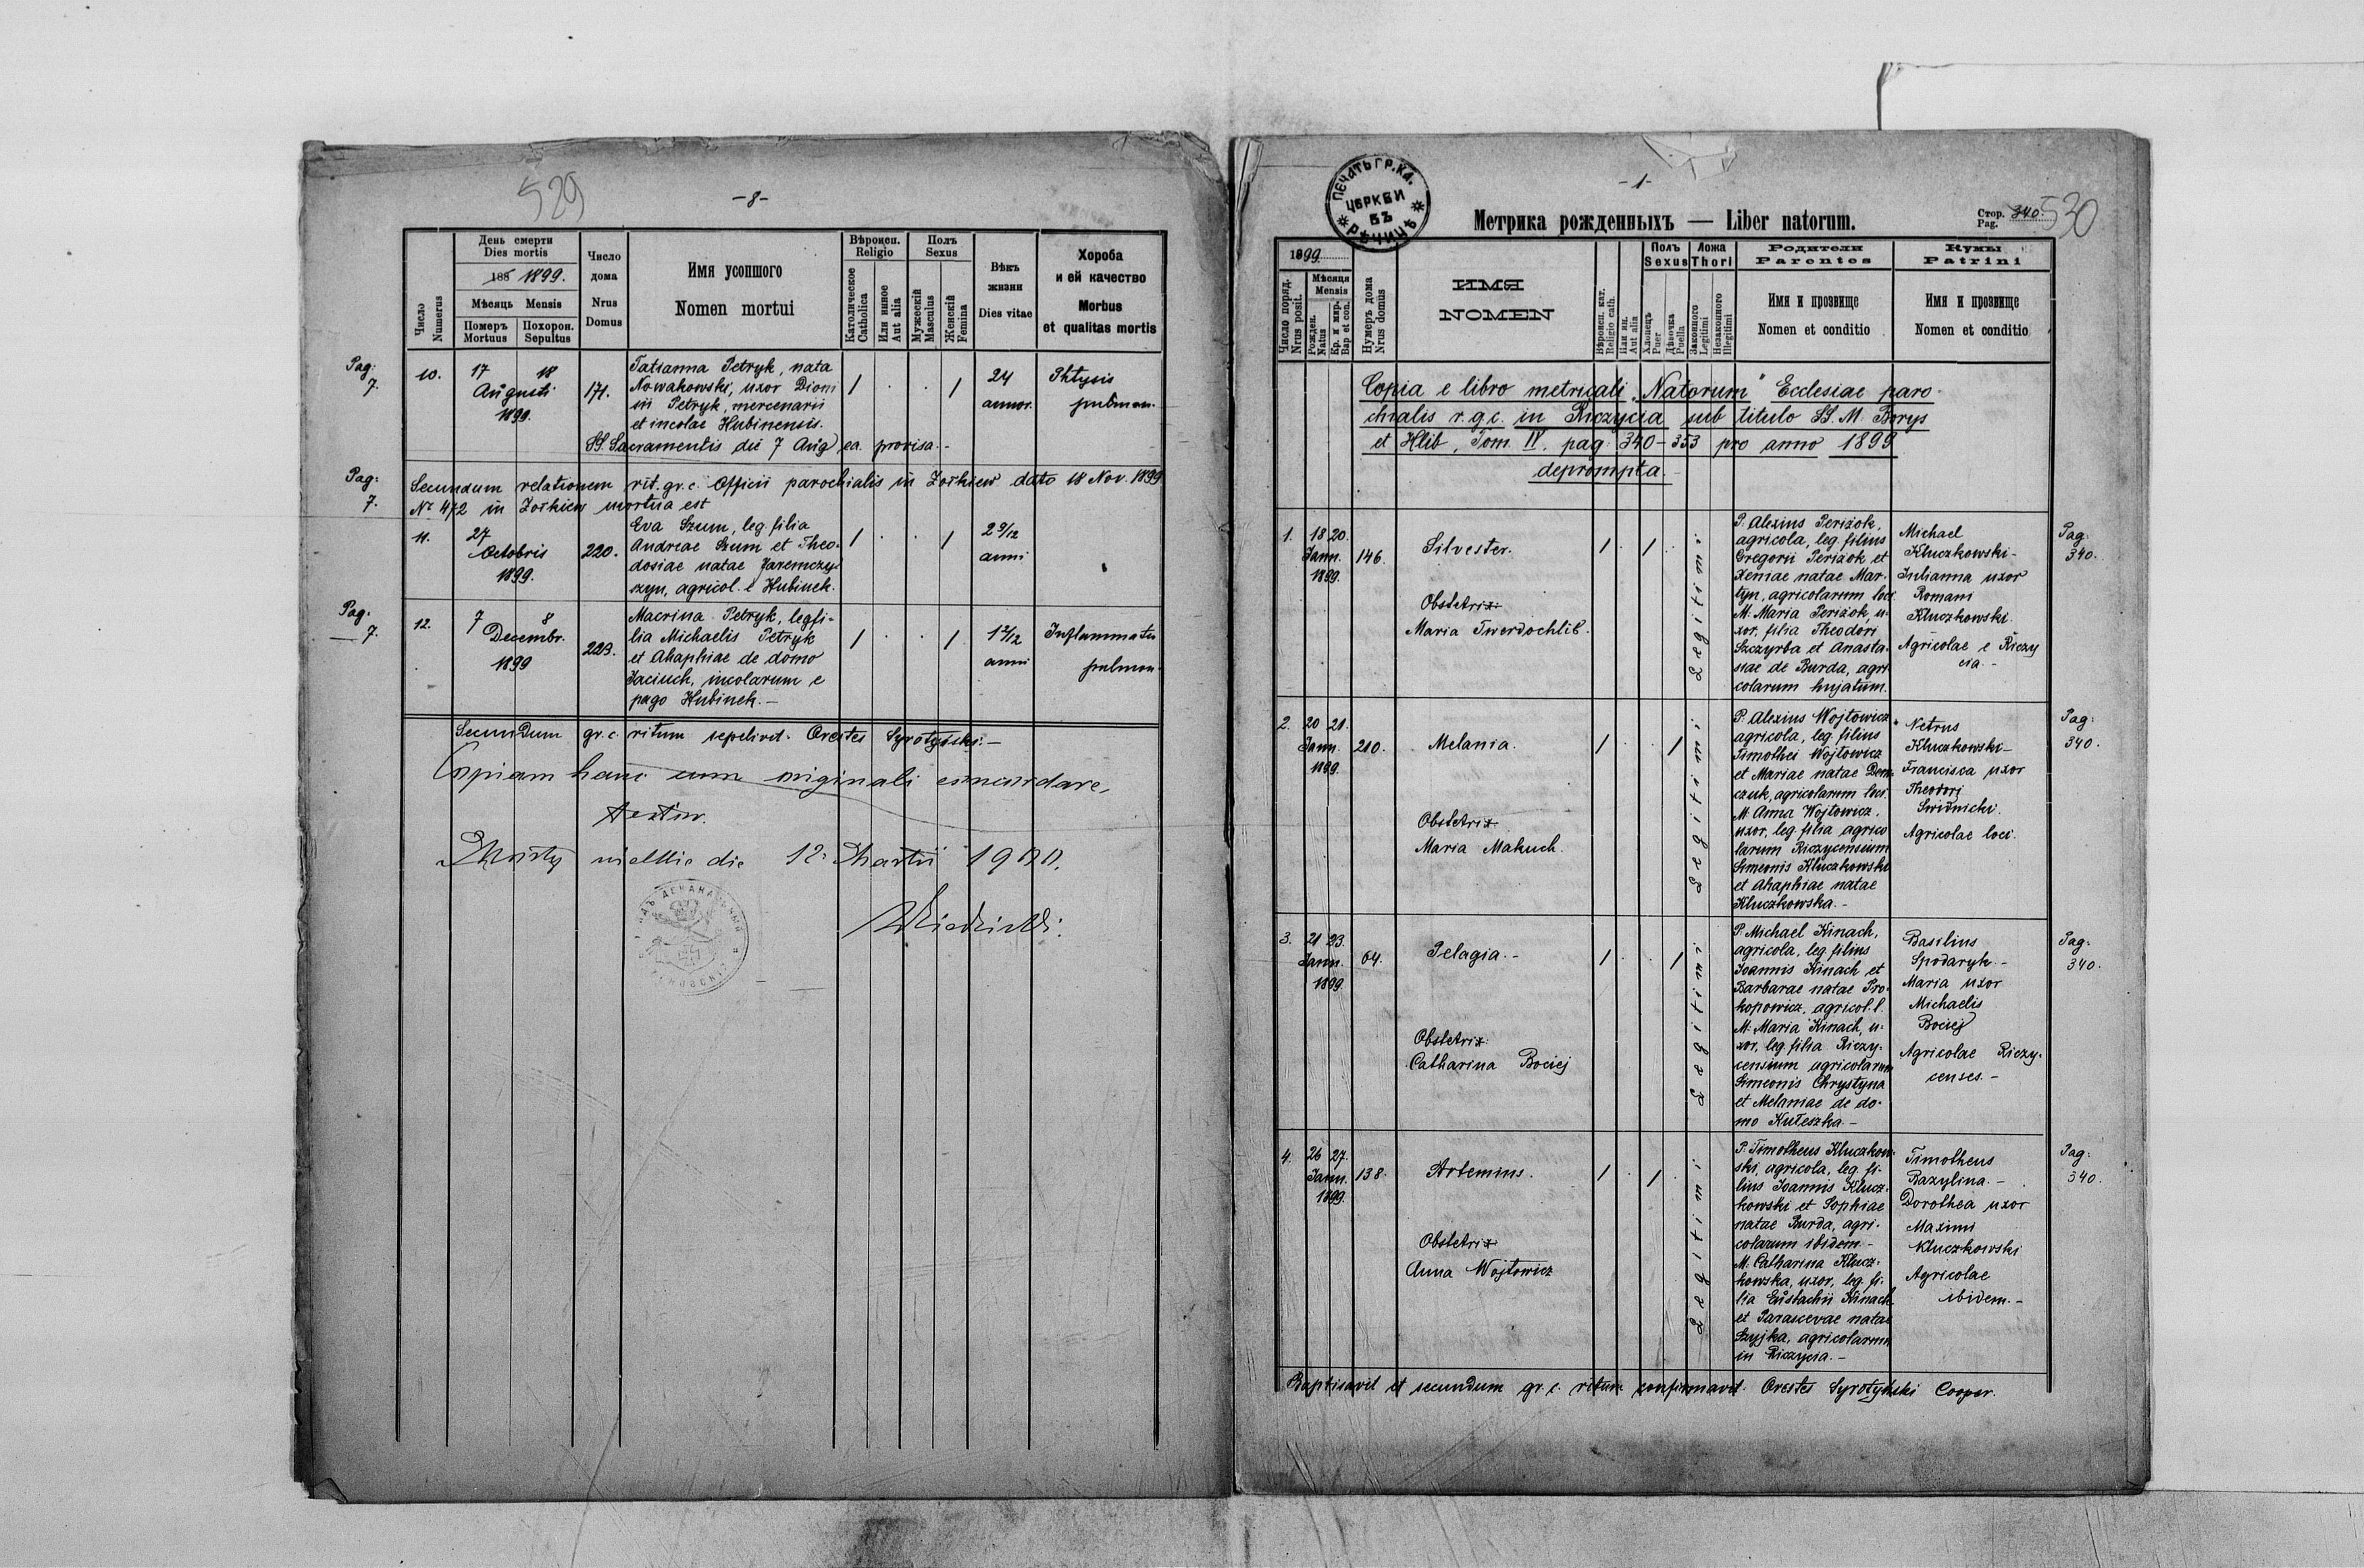 529
-8-
Число
Numerus
День смерти
Dies mortis
188 1899.
Мѣсяць Mensis
Померъ
Mortuus
Похорон.
Sepultus
Число
дома
Nrus
Domus
Имя усопшого
Nomen mortui
Вѣроисп.
Religio
Католическое
Catholica
Или инное
Aut alia
Полъ
Sexus
Мужескій
Masculus
Женскій
Femina
Вѣкъ
жизни
Dies vitae
Хороба
и ей качество
Morbus
et qualitas mortis
Pag:
7.
10.
17 18
Augusti
1899.
171.
Tatianna Petryk, nata
Nowakowski, uxor Dioni
sii Petryk, mercenarii
et incolae Hubinensis.
SS. Sacramentis die 7 Aug ea. provisa.-
1 . . 1
24
annor.
Phtysis
pulmon.
Pag:
7.
Secundum relationem rit. gr. c. Officii parochialis in Żołkiew dato 18 Nov. 1899
Nr 472 in Żołkiew mortua est
11.
27
Octobris
1899.
220.
Eva Szum, leg. filia
Andreae Szum et Theo-
dosiae natae Jaremczy-
szyn, agricol. e Hubinek.
1 . . 1
2 9/12
anni
Pag:
7.
12.
7 8
Decembr.
1899
223.
Macrina Petryk, leg. fi-
lia Michaelis Petryk
et Ahaphiae de domo
Jaciuch, incolarum e
pago Hubinek.-
1 . . 1
anni
Inflammatio
pulmon.
Secundum gr. c. ritum sepelivit. Orestes Syrotyński.-
Copiam hanc cum originali concordare,
testor.
Mosty wielkie die 12. Martii 1900.
ПЕЧАТЬ ГР. КА.
ЦЕРКВИ
ВЪ
РѢЧИЦѢ
-1-
Метрика рожденныхъ — Liber natorum.
Стор. 340.
Pag.
530
1899
Число поряд.
Nrus posit.
Мѣсяця
Mensis
Рожден.
Natus
Кр. и мир.
Bap et con.
Нумеръ дома
Nrus domus
ИМЯ
NOMEN
Вѣроисп. кат.
Religio cath.
Или ин.
Aut alia
Полъ
Sexus
Хлопецъ
Puer
Дѣвочка
Puella
Ложа
Thori
Законного
Legitimi
Незаконного
Illegitimi
Родители
Parentes
Имя и прозвище
Nomen et conditio
Кумы
Patrini
Имя и прозвище
Nomen et conditio
Copia e libro metricali „Natorum" Ecclesiae paro-
chialis r. g. c. in Riczycia sub titulo SS. M. Borys
et Hlib, Tom. IV. pag. 340-353 pro anno 1899
deprompta.
1.
18 20.
Jann.
1899.
146.
Silvester.
Obstetrix
Maria Twerdochlib.
1 . 1 .
Legitimi
P. Alexius Periżok,
agricola, leg. filius
Gregorii Periżok et
Xeniae natae Mar-
tyn, agricolarum loci
M. Maria Periżok, u-
xor, filia Theodori
Szczyrba et Anasta-
siae de Burda, agri
colarum hujatum.
Michael
Kluczkowski-
Julianna uxor
Romani
Kluczkowski.
Agricolae e Riczy
cia.-
Pag:
340.
2.
20 21.
Jann.
1899.
210.
Melania.
Obstetrix
Maria Makuch.
1 . . 1
Legitimi
P. Alexius Wojtowicz
agricola, leg. filius
Timothei Wojtowicz
et Mariae natae Dem-
czuk, agricolarum loci.
M. Anna Wojtowicz,
uxor, leg. filia agrico
larum Riczycensium
Simeonis Kluczkowski
et Ahaphiae natae
Kluczkowska.-
Kluczkowski-
Francisca uxor
Theodori
Swidnicki.
Agricolae loci.
Pag:
340.
3.
21 23.
Jann.
1899.
64.
Pelagia.-
Obstetrix
Catharina Bociej
1 . . 1
Legitimi
P. Michael Kinach,
agricola, leg. filius
Joannis Kinach et
Barbarae natae Pro-
kopowicz, agricol. l.
M. Maria Kinach, u-
xor, leg. filia Riczy-
censium agricolarum
Simeonis Chrystyna
et Melaniae de do-
mo Kuteszka.-
Basilius
Spodaryk.-
Maria uxor
Michaelis
Bociej
Agricolae Riczy-
censes.-
Pag:
340.
4.
26 27.
Jann.
1899.
138.
Artemius.
Obstetrix
Anna Wojtowicz
1 . 1 .
Legitimi
P. Timotheus Kluczkow-
ski, agricola, leg. fi-
lius Joannis Klucz-
kowski et Sophiae
natae Burda, agri-
colarum ibidem.-
M. Catharina Klucz-
kowska, uxor, leg. fi-
lia Eustachii Kinach
et Parascevae natae
Szyjka, agricolarum
in Riczycia.-
Timotheus
Bazylina.-
Dorothea uxor
Maximi
Kluczkowski
Agricolae
ibidem.-
Pag:
340.
Baptisavit et secundum gr. c. ritum confirmavit. Orestes Syrotyński Cooper.